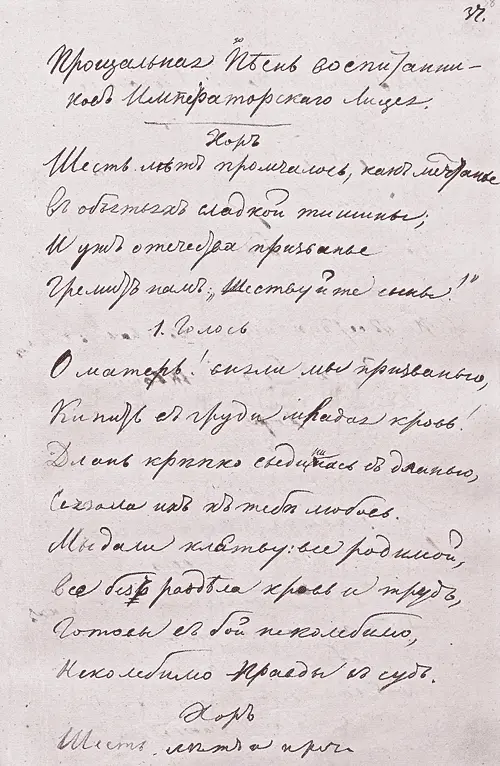 37.
Прощальная Пѣснь воспитанни-
ковъ Императорскаго Лицея.
Хоръ
Шесть лѣтъ промчалось, какъ мечтанье
Въ объятьяхъ сладкой тишины;
И ужъ отечества призванье
Гремитъ намъ: „Шествуйте сыны!"
1. Голосъ
О матерь! вняли мы призванью,
Кипитъ въ груди младая кровь!
Длань крѣпко съединилась съ дланью,
Связала ихъ къ тебѣ любовь.
Мы дали клятву: все родимой,
Все безъ раздѣла кровь и трудъ,
Готовы въ бой неколебимо,
Неколебимо правды въ судъ.
Хоръ
Шесть лѣтъ и проч.